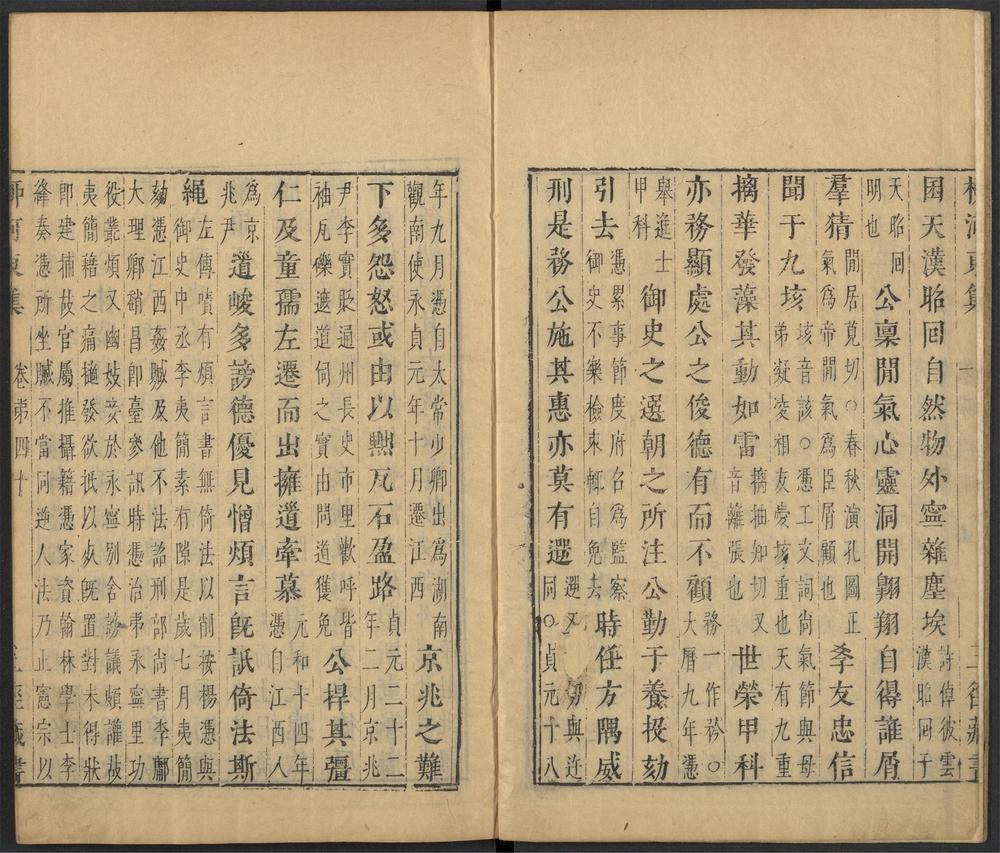 囷天漢昭回自然物外寧雜塵埃詩倬彼雲漢昭回于
天昭回明也公稟閒氣心靈洞開翺翔自得誰屑
羣猜閒居莧切○春秋演孔圖正氣爲帝閒氣爲臣屑顧也孝友忠信
聞于九垓垓音該○憑工文詞尚氣節與母弟凝凌相友愛垓重也天有九重
摛華發藻其動如雷摛抽知切又音離張也世榮甲科
亦務顯處公之俊德有而不顧務一作矜○大曆九年憑
舉進士甲科御史之選朝之所注公勤于養投劾
引去憑累事節度府名爲監察御史不樂檢束輒自免去時任方隅威
刑是務公施其惠亦莫有遻遻又切與迕同○貞元十八
年九月憑自太常少卿出爲湖南觀南使永貞元年十月遷江西京兆之難
下多怨怒或由以興瓦石盈路貞元二十二年二月京兆
尹李實貶通州長史市里歡呼皆袖瓦礫遮道伺之實由問道獲免公捍其彊
仁及童孺左遷而出擁道牽慕元和十四年憑自江西入
爲京兆尹道峻多謗德優見憎煩言旣詆倚法斯
繩左傳嘖有煩言書無倚法以削按楊憑與御史中丞李夷簡素有隙是歲七月夷簡
劾憑江西姦贓及他不法詔刑部尚書李鄘大理卿趙昌卽臺參訊時憑治第永寧里功
役叢煩又幽妓妾於永寧別舍謗議頗讙故夷簡藉之痛擿發欲抵以死旣置對未得狀
卽建捕故官屬推攝籍憑家資翰林學士李絳奏憑所坐贓不當同逆人法乃止憲宗以
柳河東集 卷第四十 三徑藏書